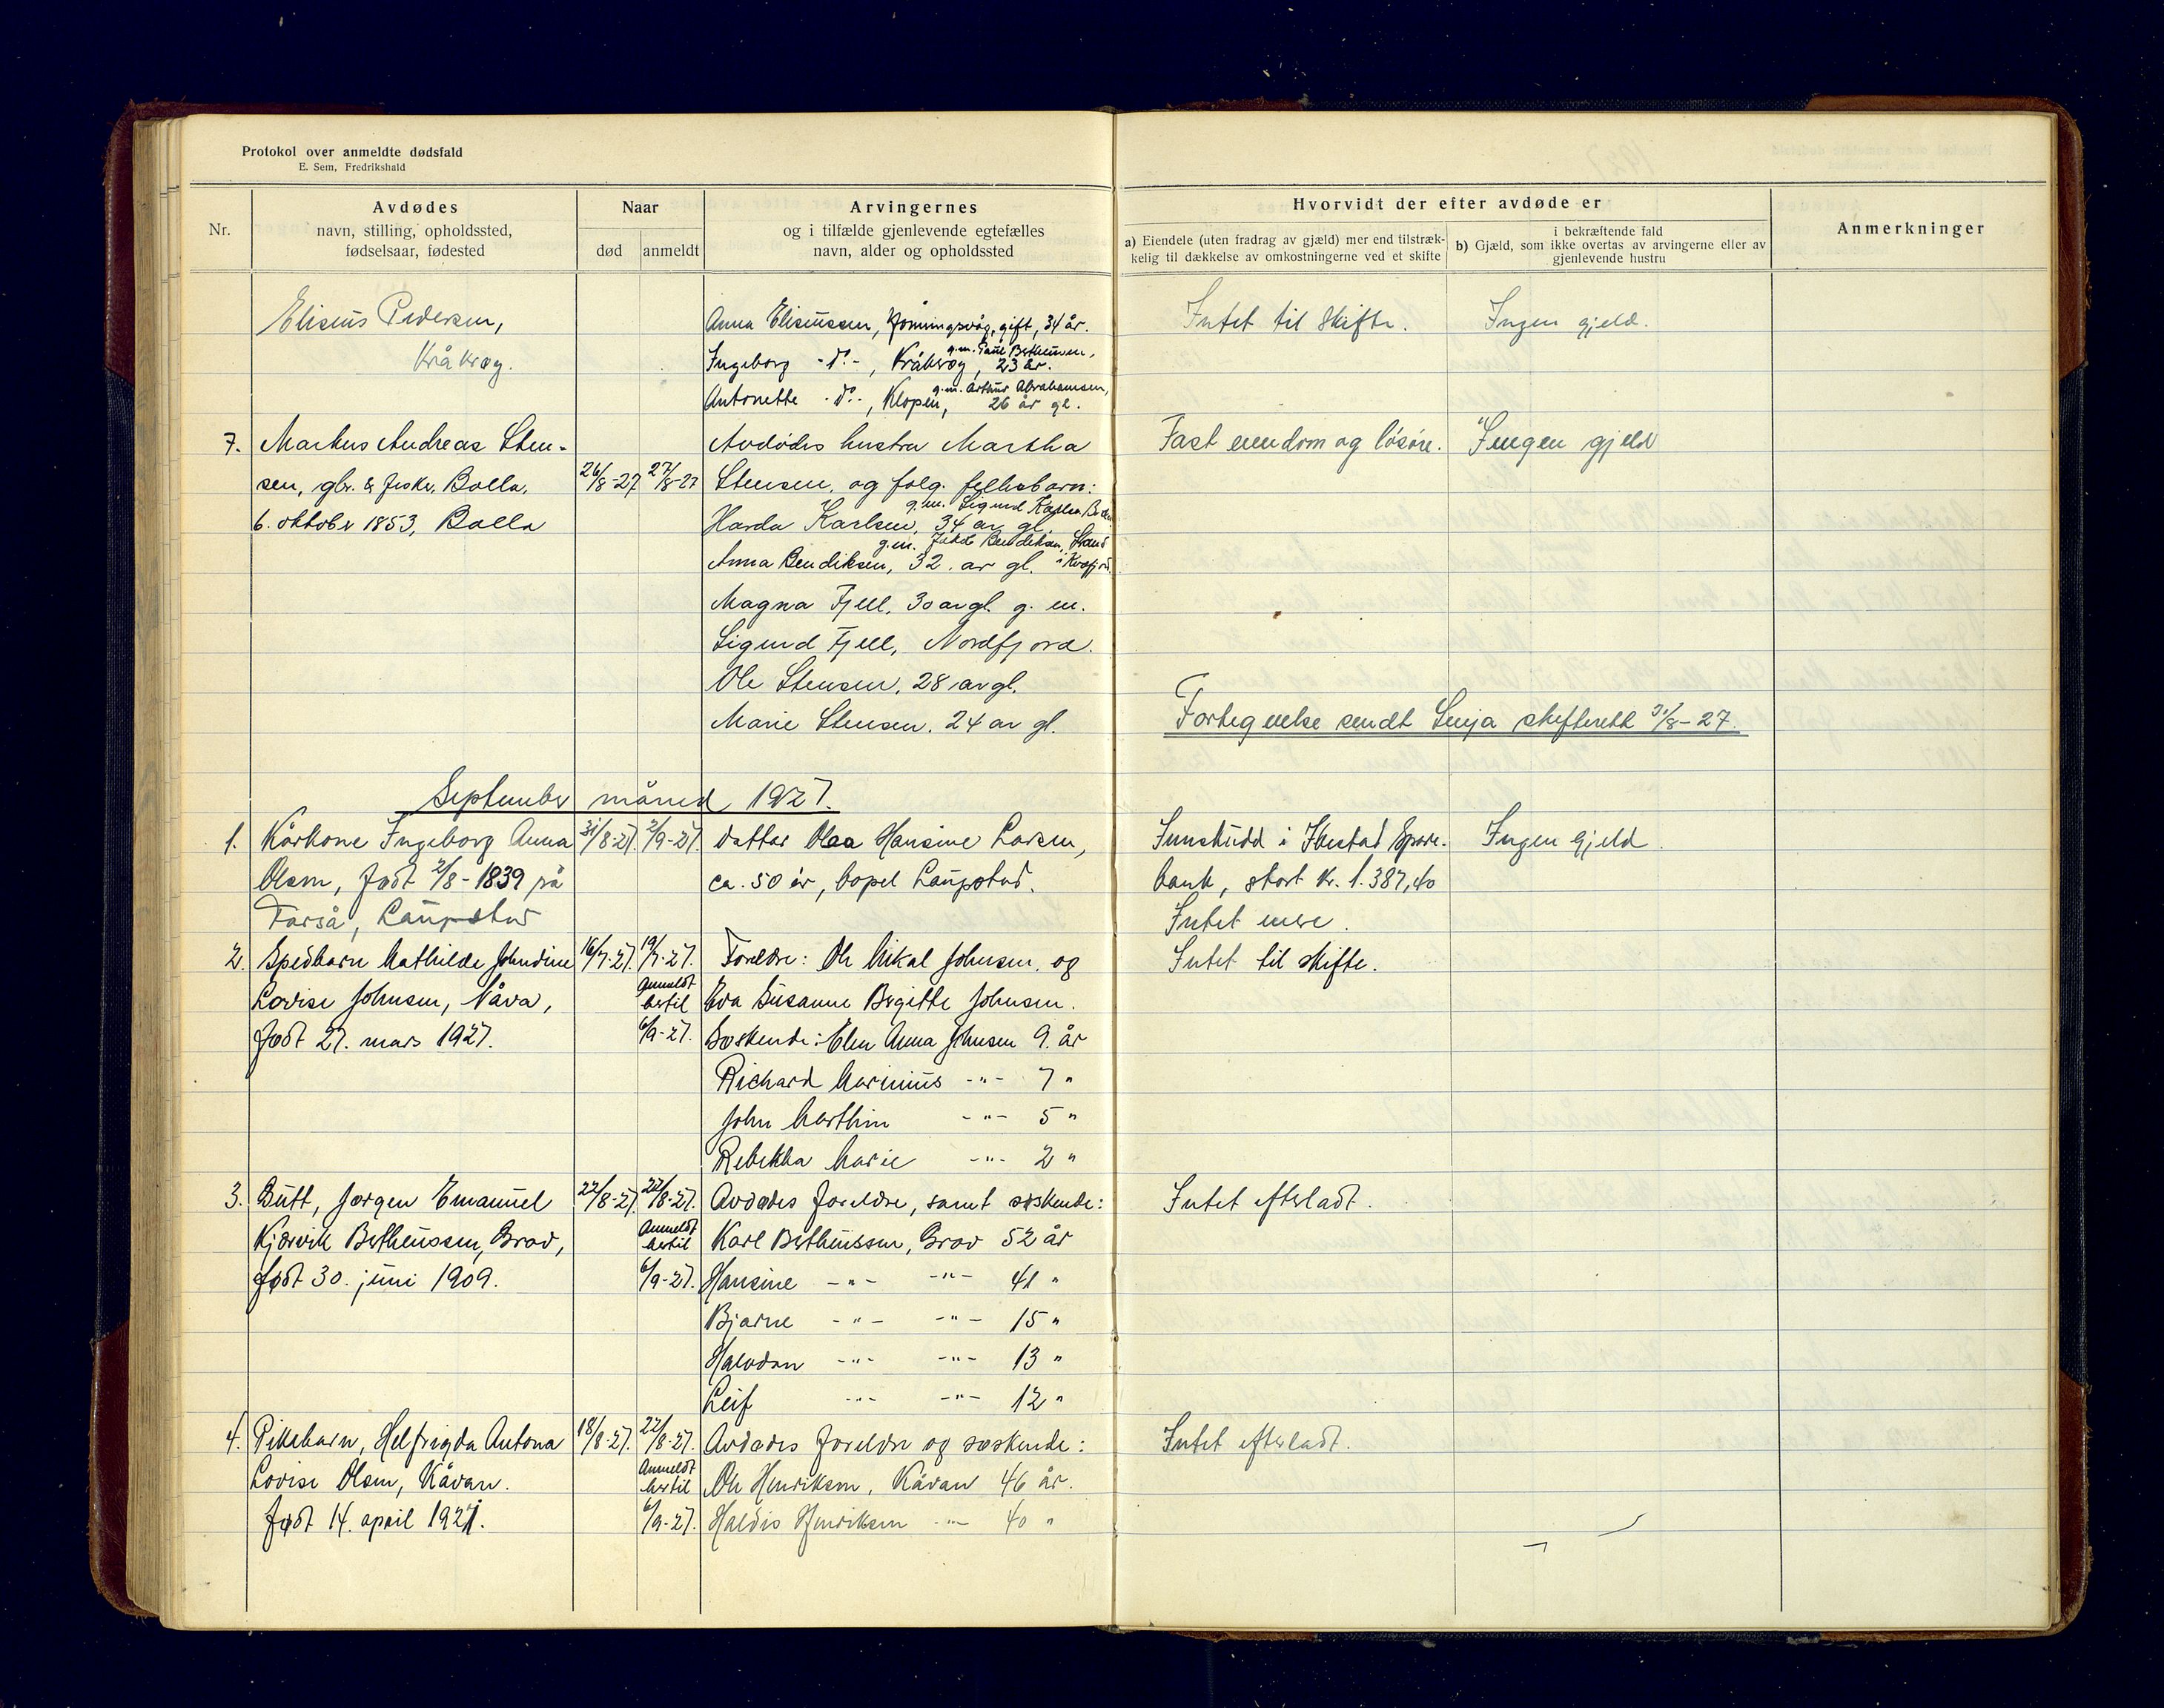 Protokol over anmeldte dødsfald
E. Sem, Fredrikshald
Nr.
Avdødes
navn, stilling, opholdssted,
fødselsaar, fødested
Naar
død
anmeldt
Arvingernes
og i tilfælde gjenlevende egtefælles
navn, alder og opholdssted
Hvorvidt der efter avdøde er
a) Eiendele (uten fradrag av gjæld) mer end tilstræk-
kelig til dækkelse av omkostningerne ved et skifte
i bekræftende fald
b) Gjæld, som ikke overtas av arvingerne eller av
gjenlevende hustru
Anmerkninger
Eliseus Pedersen,
Kråkrøy.
Anna Eliseussen, Honningsvåg, gift, 34 år.
g.m. Paul Bertheussen,
Ingeborg -do-, Kråkrøy, 23 år.
g.m. Arthur Abrahamsen,
Antonette -do-, Klopen, 26 år gl.
Intet til skifte.
Ingen gjeld.
7. Markus Andreas Sten-
sen, gbr. & fisker. Bolla.
6. oktober 1853, Bolla
26/8-27
27/8-27
Avdødes hustru Martha
Stensen, og følg. fellesbarn:
g.m. Sigurd Karlsen
Harda Karlsen, 34 år gl.
g.m. Bendiksen, Strand
Anna Bendiksen, 32 år gl. i Kvæfjord.
Magna Fjell, 30 år gl. g. m.
Sigurd Fjell, Nordfjord.
Ole Stensen, 28 år gl.
Marie Stensen. 24 år gl.
Fast eiendom og løsøre.
Ingen gjeld
Fortegnelse sendt Senja skifterett 31/8-27.
September måned 1927.
1. Kårkone Ingeborg Anna
Olsen, født 2/8-1839 på
Forså, Laupstad
31/8-27.
2/9-27.
Datter Olea Hansine Larsen,
ca. 50 år, bopel Laupstad.
Innskudd i Ibestad Spare-
bank, stort kr. 1.387,40
Intet mere.
Ingen gjeld.
2. Spedbarn Mathilde Johndine
Lovise Johnsen, Våva,
født 27. mars 1927.
16/7-27.
19/7-27.
Anmeldt
hertil
6/9-27.
Foreldre: Ole Mikal Johnsen, og
Eva Susanne Birgitte Johnsen.
Søskende: Elen Anna Johnsen 9. år
Richard Marinius -"- 7 "
John Marthin -"- 5 "
Rebekka Marie -"- 2 "
Intet til skifte.
3. Gutt, Jørgen Emanuel
Kjærvik Bertheussen, Grov,
født 30. juni 1909.
22/8-27.
22/8-27.
Anmeldt
hertil
6/9-27.
Avdødes foreldre, samt søskende:
Karl Bertheussen, Grov 52 år
Hansine -"- -"- 41 "
Bjarne -"- -"- 15 "
Halvdan -"- -"- 13 "
Leif -"- -"- 12 "
Intet efterladt.
4. Pikebarn, Helfrigda Antona
Lovise Olsen, Kåvan.
født 14. april 1921.
18/8-27.
22/8-27.
Anmeldt
hertil
6/9-27.
Avdødes foreldre og søskende:
Ole Henriksen, Kåvan 46 år.
Haldis Henriksen -"- 40 "
Intet efterladt.